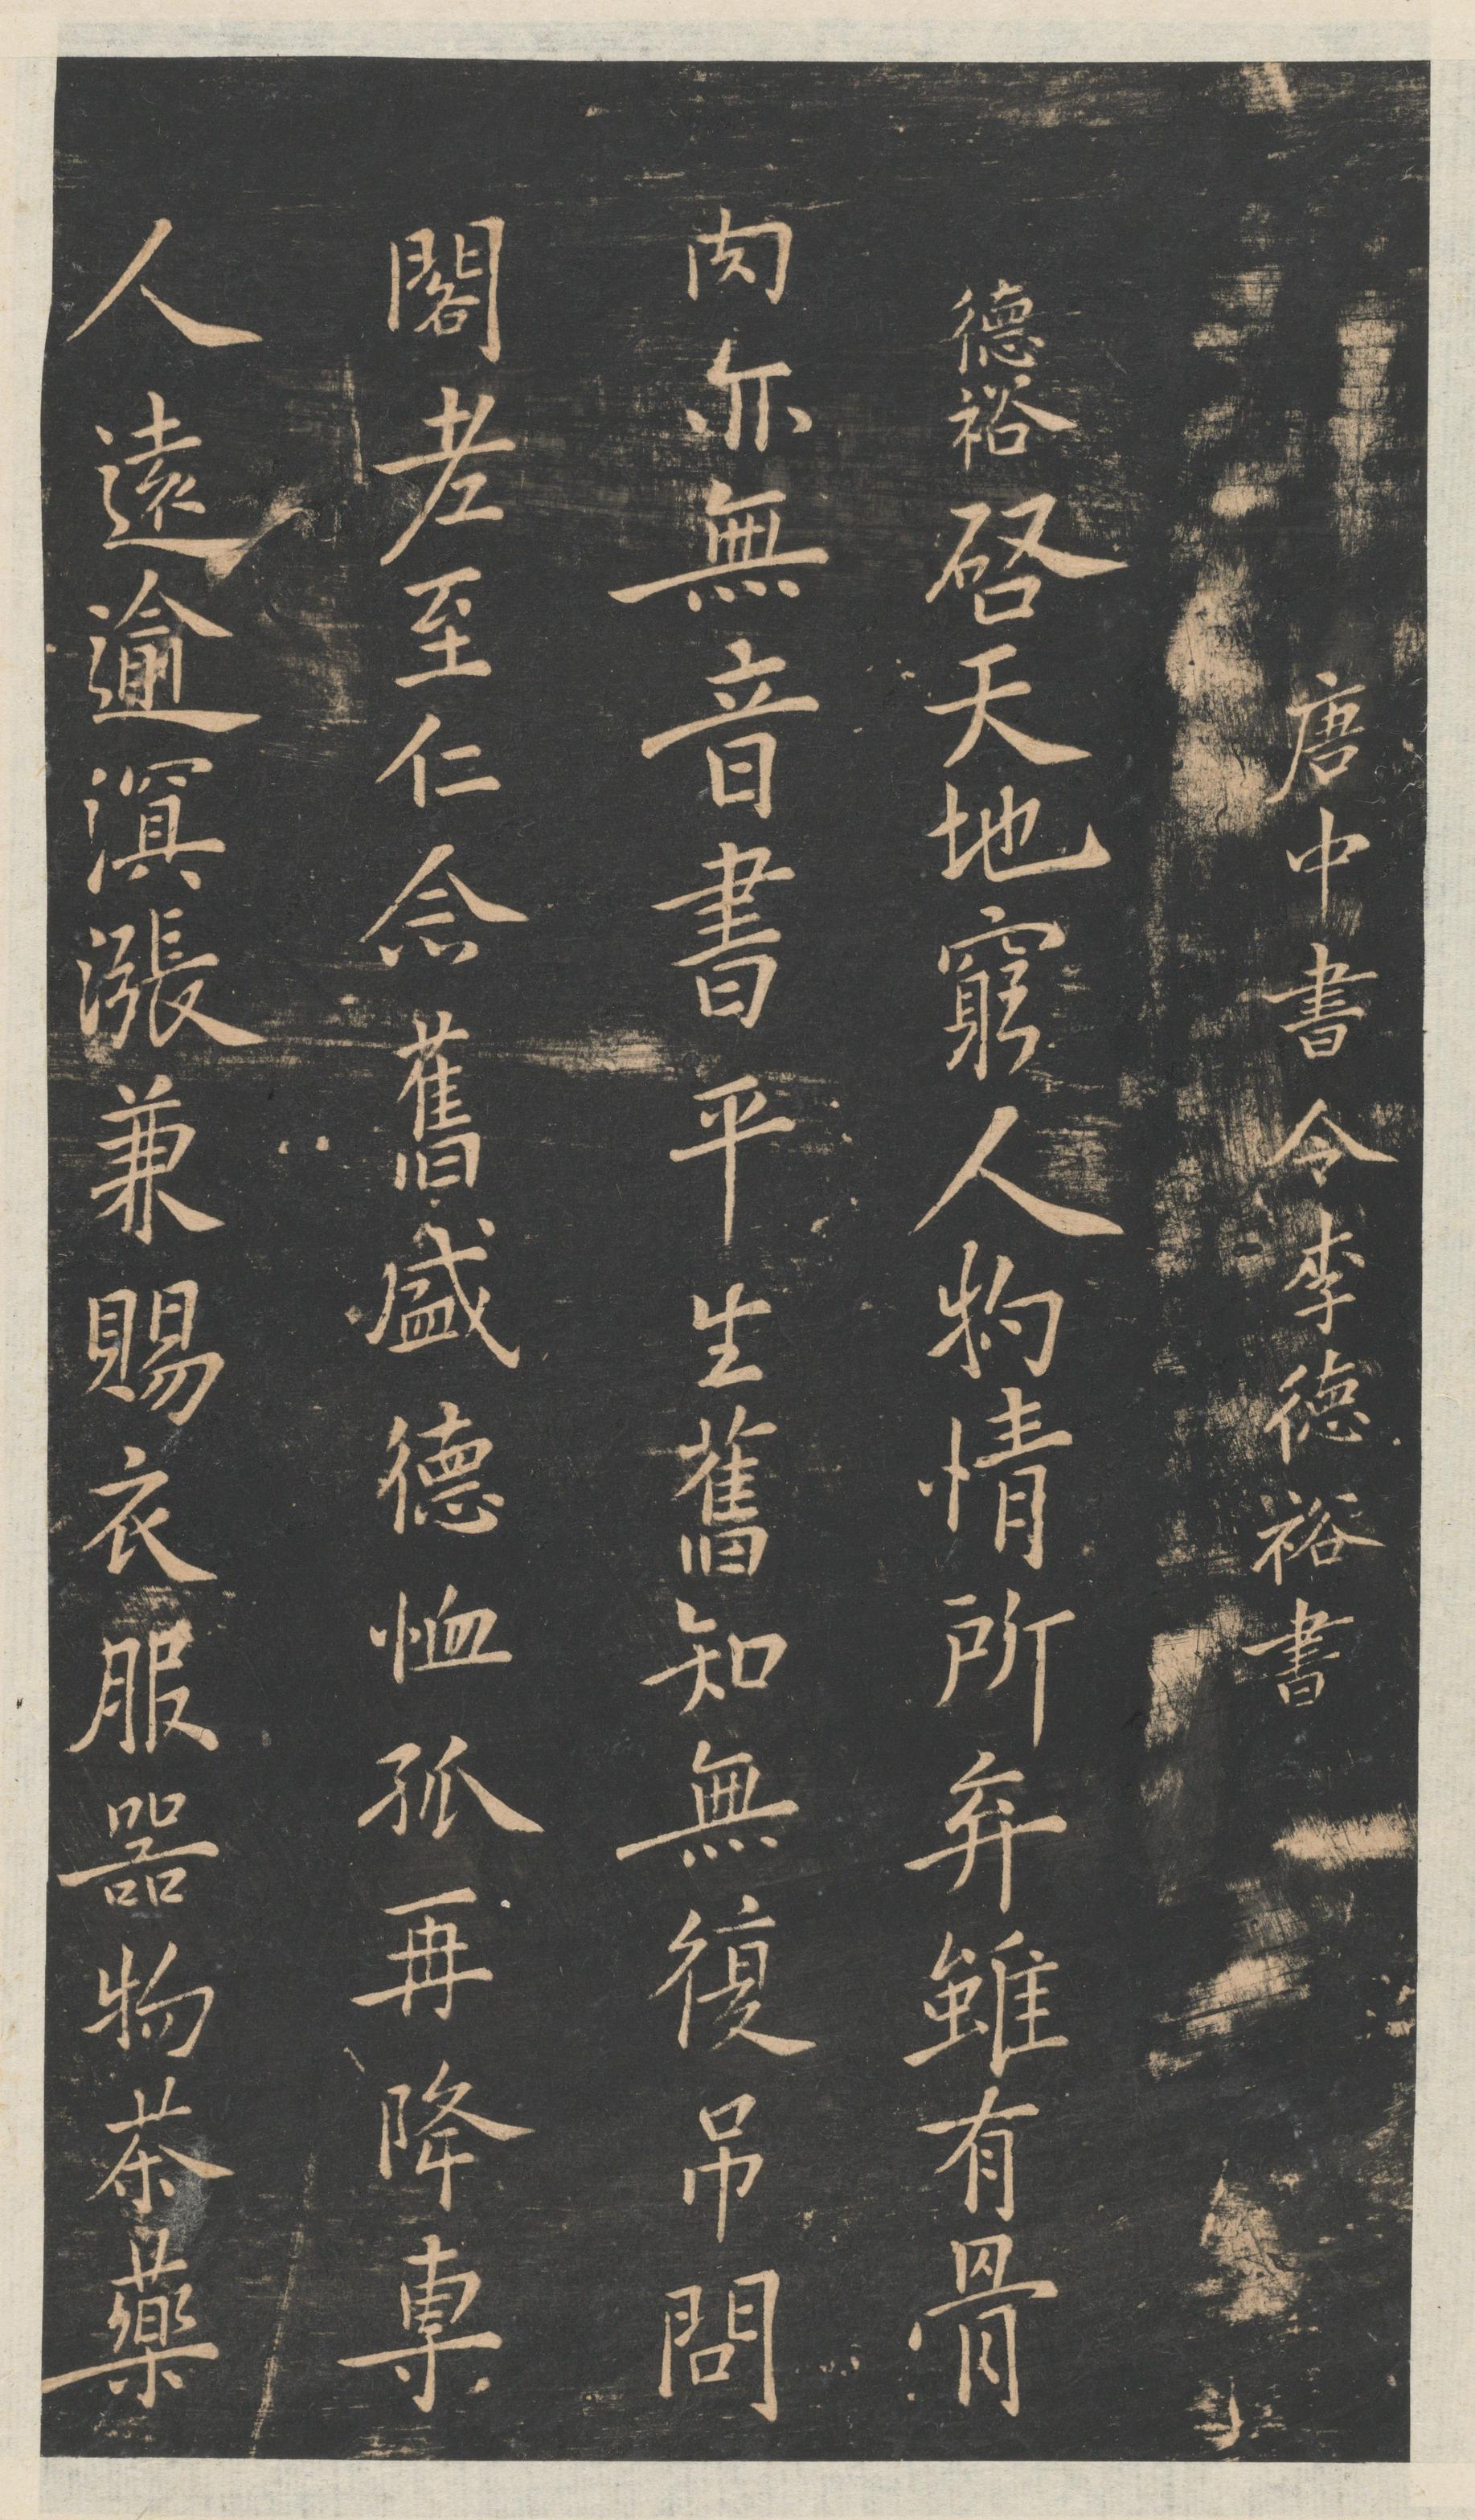 唐中書令李德裕書
德裕啓天地窮人物情所弃雖有骨
肉亦無音書平生舊知無復吊問
閣老至仁念舊盛德恤孤再降專
人遠逾溟漲兼賜衣服器物茶藥